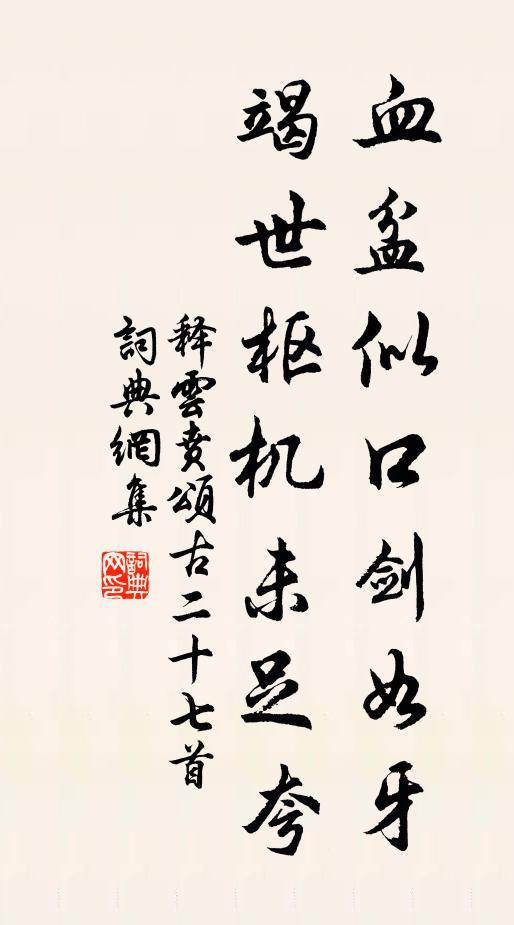 血盆似口剑如牙
竭世枢机未足夸
释雲贲頌古二十七首
詞典網集
詞典网印